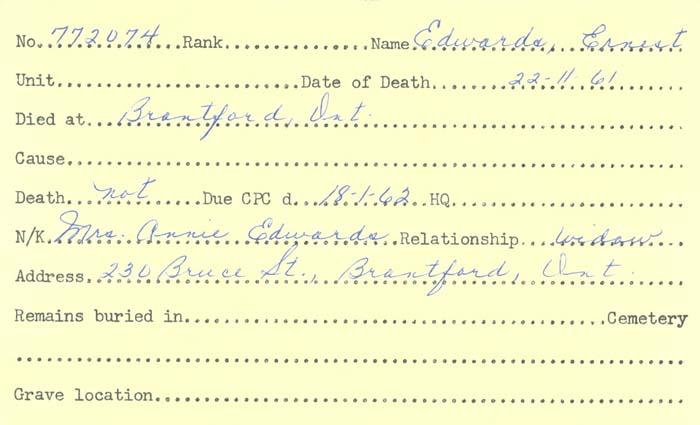 No. 772074 Rank................Name Edwards, Ernest
Unit.............................Date of Death 22-11-61
Died at Brantford, Ont.
Cause
Death not Due CPC d. 18-1-62 HQ
N/K Mrs. Annie Edwards Relationship widow
Address 230 Bruce St., Brantford, Ont.
Remains buried in..................................Cemetery
Grave location